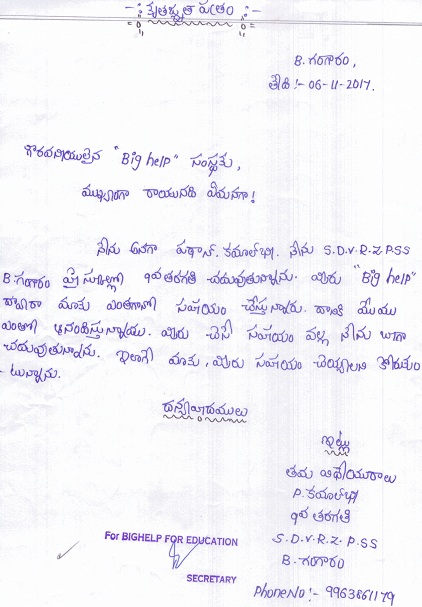 -: కృతజ్ఞత పత్రం :-
B. గంగారం,
తేది :- 06-11-2017.
గౌరవనీయులైన "Big help" సంస్థకు,
ముఖ్యంగా రాయునది ఏమనగా!
నేను అనగా పఠాన్. కమాల్‌భి. నేను S.D.V.R.Z.PSS
B.గంగారం హై స్కూల్లో 9వ తరగతి చదువుతున్నాను. మీరు "Big help"
ద్వారా మాకు ఎంతగానో సహాయం చేస్తున్నారు. దానికి మేము
ఎంతో ఆనందిస్తున్నాము. మీరు చేసే సహాయం వల్ల నేను బాగా
చదువుతున్నాను. ఇలాగే మాకు, మీరు సహాయం చెయ్యాలని కోరుకుం
-టున్నాను.
ధన్యవాదములు
ఇట్లు
తమ విధేయురాలు
P. కమాల్‌భి
9వ తరగతి
S.D.V.R.Z.P.SS
B. గంగారం
For BIGHELP FOR EDUCATION
SECRETARY
Phone No :- 9963861179